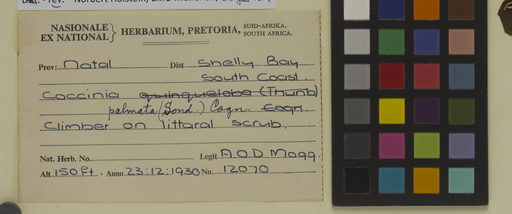 Det. - rev.
NASIONALE EX NATIONAL } HERBARIUM, PRETORIA, SUID-AFRIKA. SOUTH AFRICA.
Prov: Natal Dist Shelly Bay
South Coast.
Coccinia quinqueloba (Thunb)
palmata (Sond.) Cogn. Cogn
Climber on littaral scrub.
Nat. Herb. No. Legit A.O.D Mogg.
Alt 150 Ft. Anno 23:12:1930 No. 12070